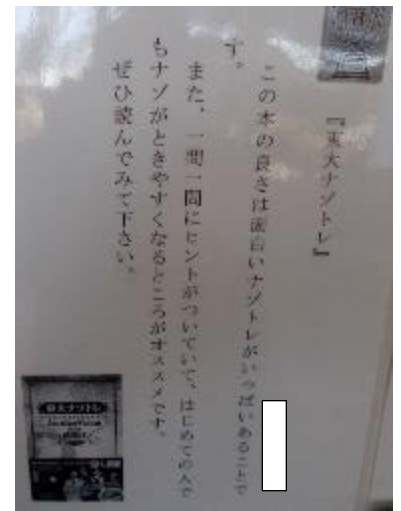 『東大ナゾトレ』
この本の良さは面白いナゾトレがいっぱいあることで
す。
また、一問一問にヒントがついていて、はじめての人で
もナゾがときやすくなるところがオススメです。
ぜひ読んでみて下さい。
東大ナゾトレ